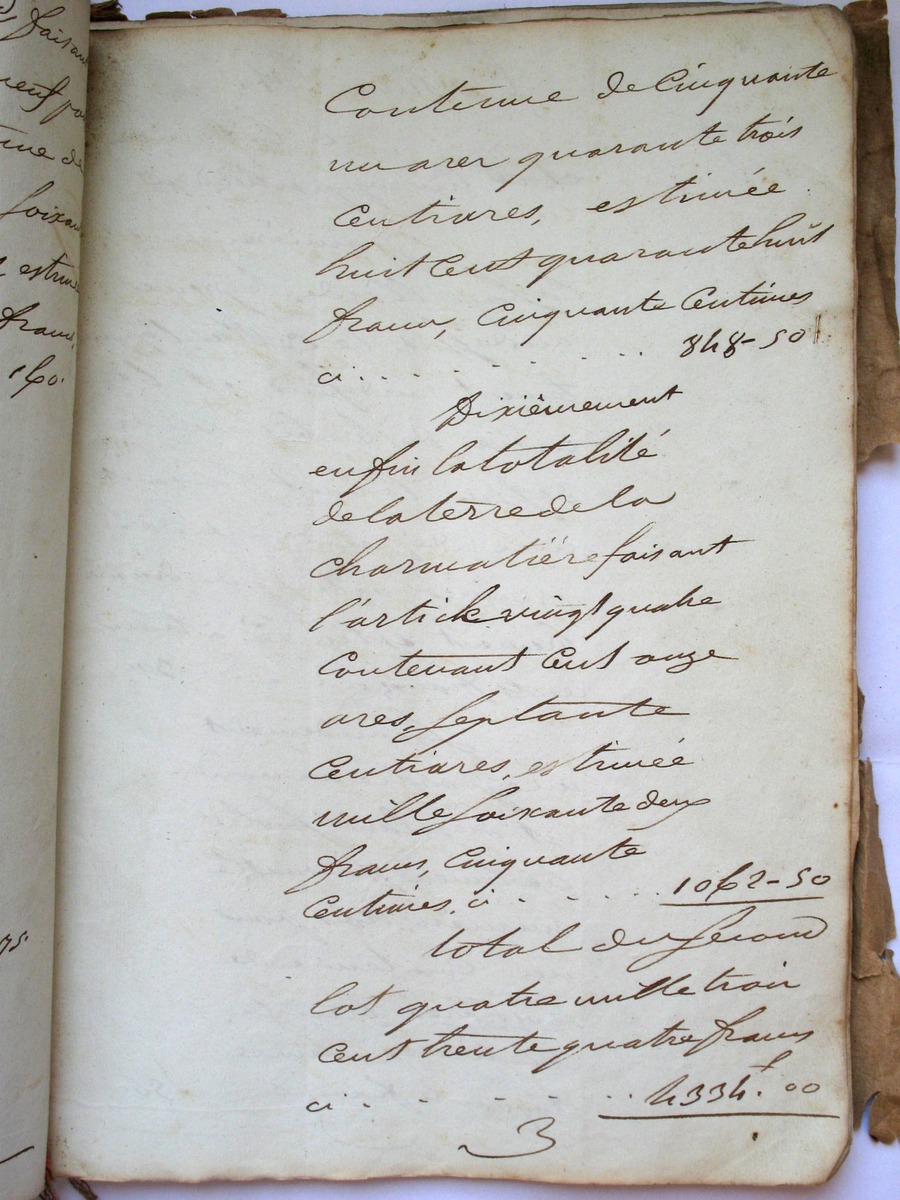 faisant
neuf
soixan
estim
francs,
160.
75.
Contenue de Cinquante
un ares quarante trois
Centiares, estimée
huit Cent quarante huit
francs, Cinquante Centimes
ci . . . . . . . . 848-50
Dixièmement
enfin la totalité
de la terre de la
charmatière faisant
l'article vingt quatre
Contenant Cent onze
ares, septante
Centiares, estimée
mille soixante deux
francs, Cinquante
Centimes, ci . . . . . 1062-50
total du second
lot quatre mille trois
cent trente quatre francs
ci . . . . . . . 4334f.00